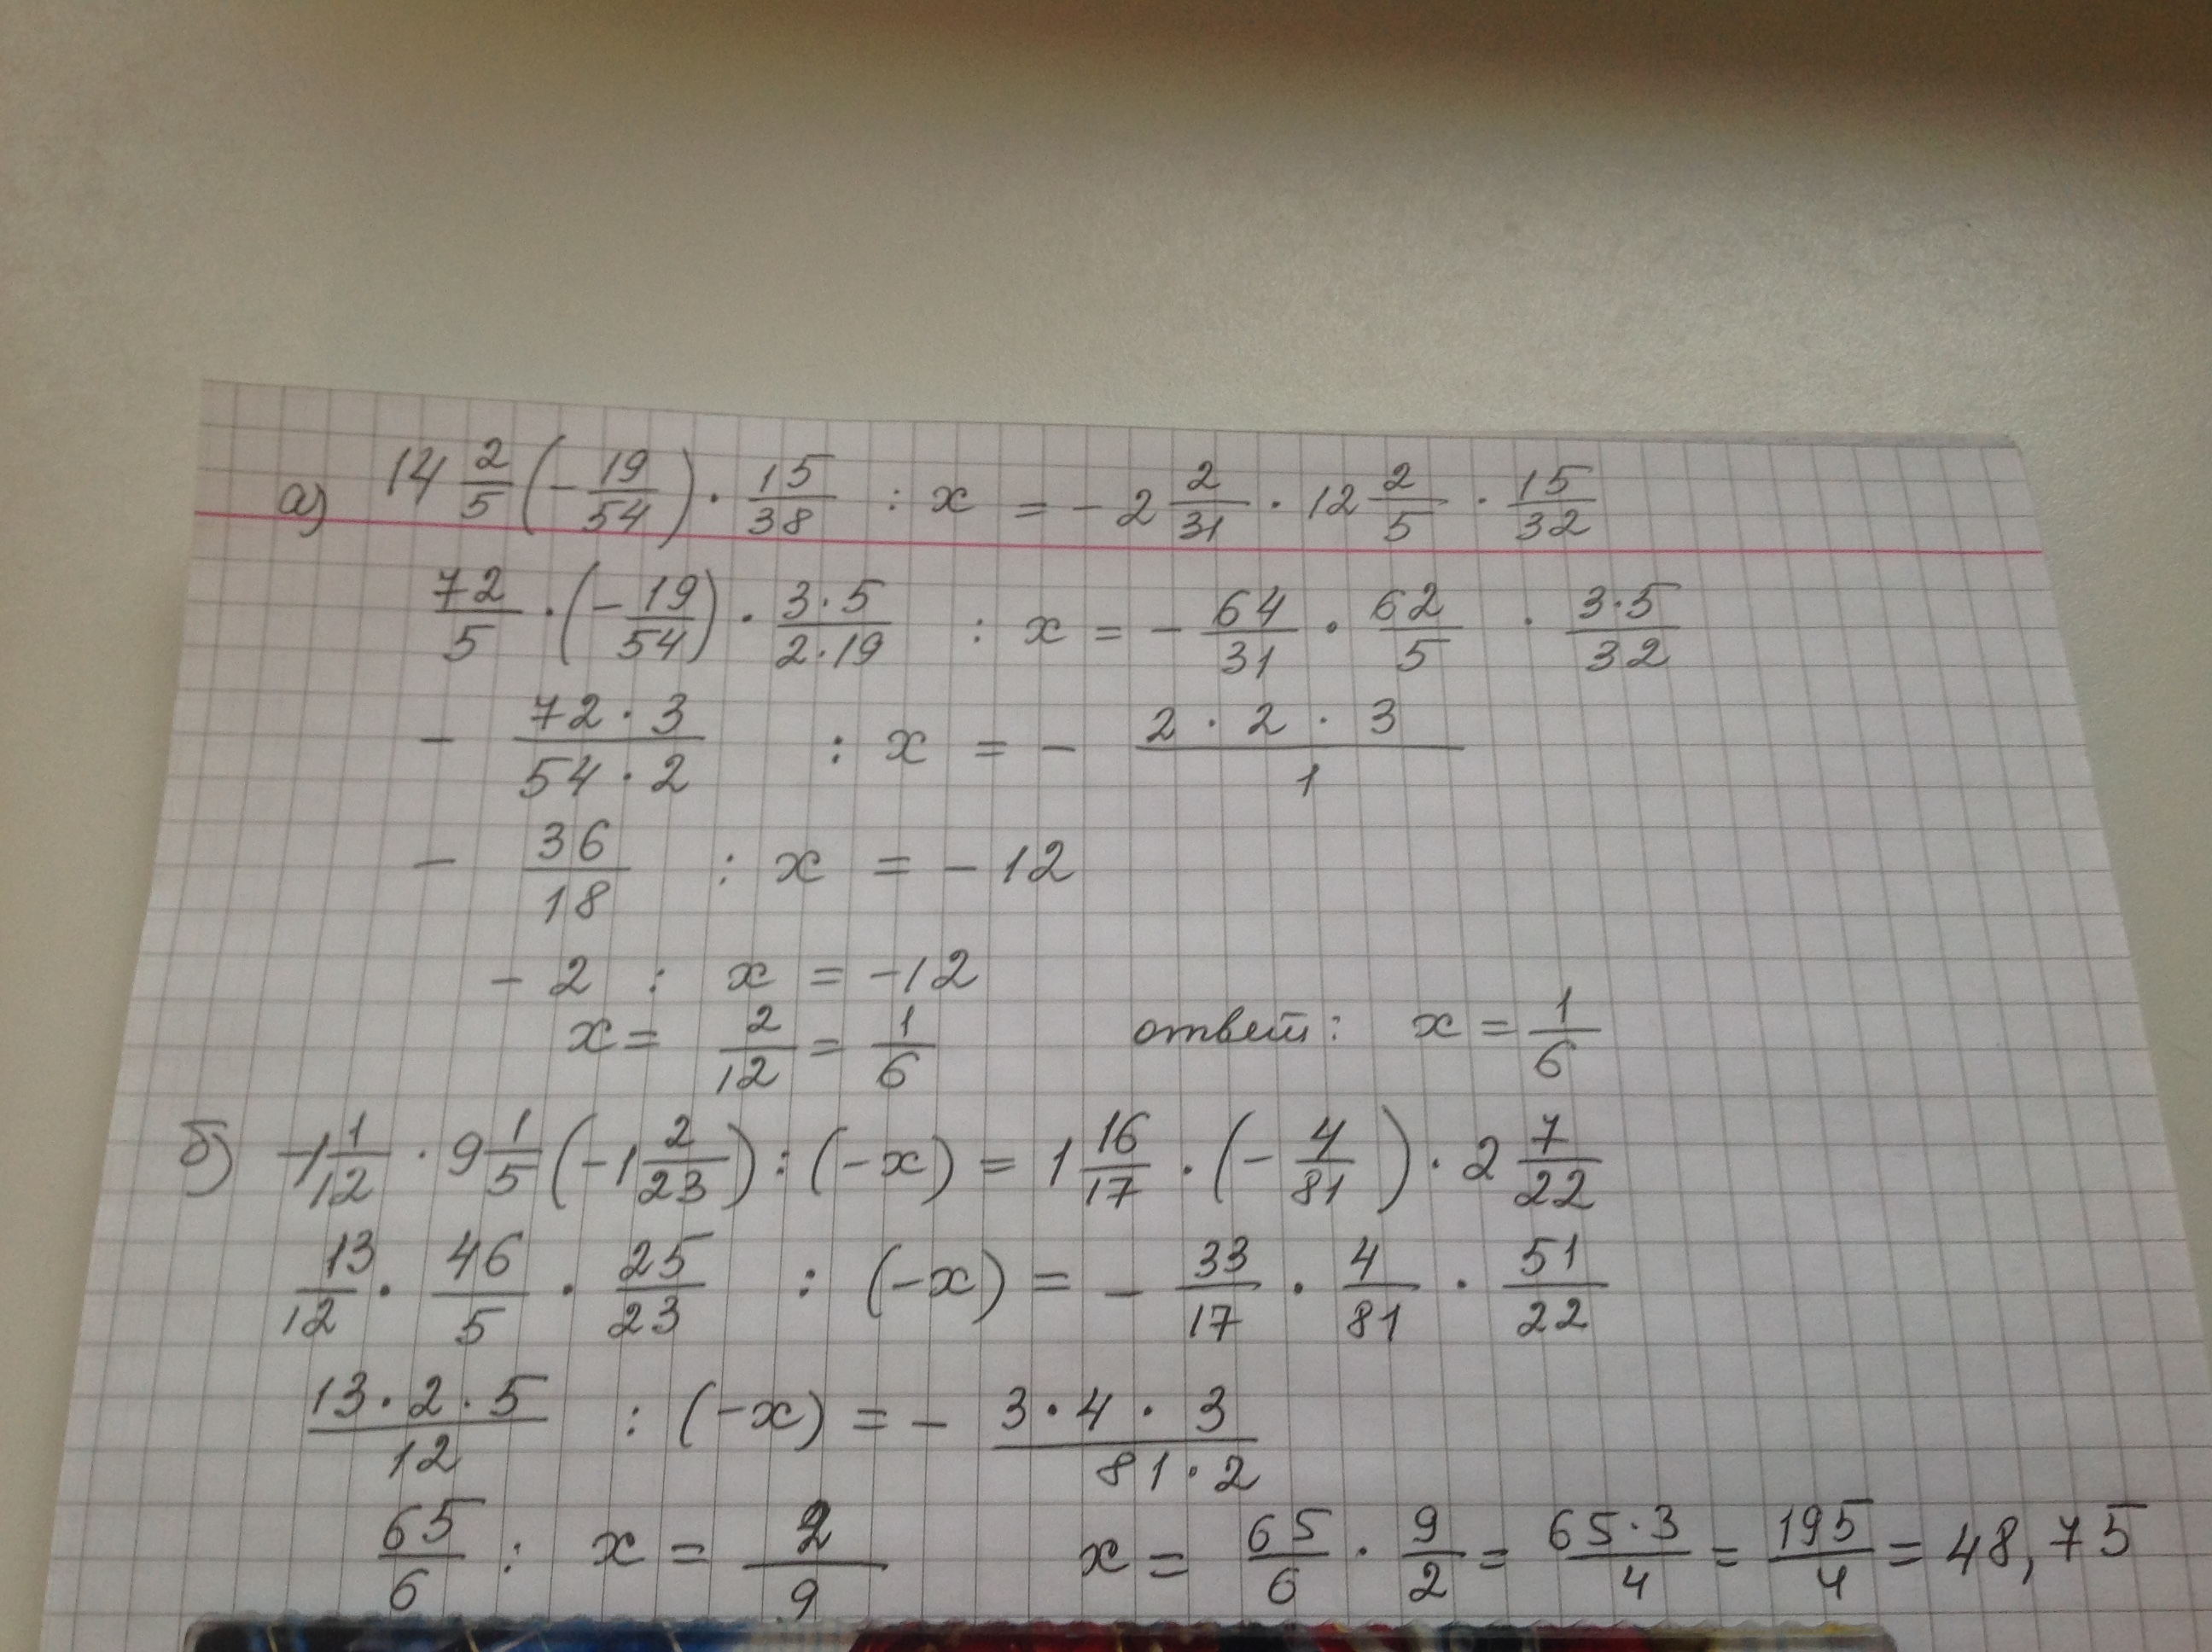 а) 14 2/5 (- 19/54) · 15/38 : x = - 2 2/31 · 12 2/5 · 15/32
72/5 · (- 19/54) · 3·5/2·19 : x = - 64/31 · 62/5 · 3·5/32
- 72·3/54·2 : x = - 2·2·3/1
- 36/18 : x = - 12
- 2 : x = -12
x = 2/12 = 1/6 ответ: x = 1/6
б) -1 1/12 · 9 1/5 (-1 2/23) : (-x) = 1 16/17 · (- 4/81) · 2 7/22
13/12 · 46/5 · 25/23 : (-x) = - 33/17 · 4/81 · 51/22
13·2·5/12 : (-x) = - 3·4·3/81·2
65/6 : x = 2/9 x = 65/6 · 9/2 = 65·3/4 = 195/4 = 48,75